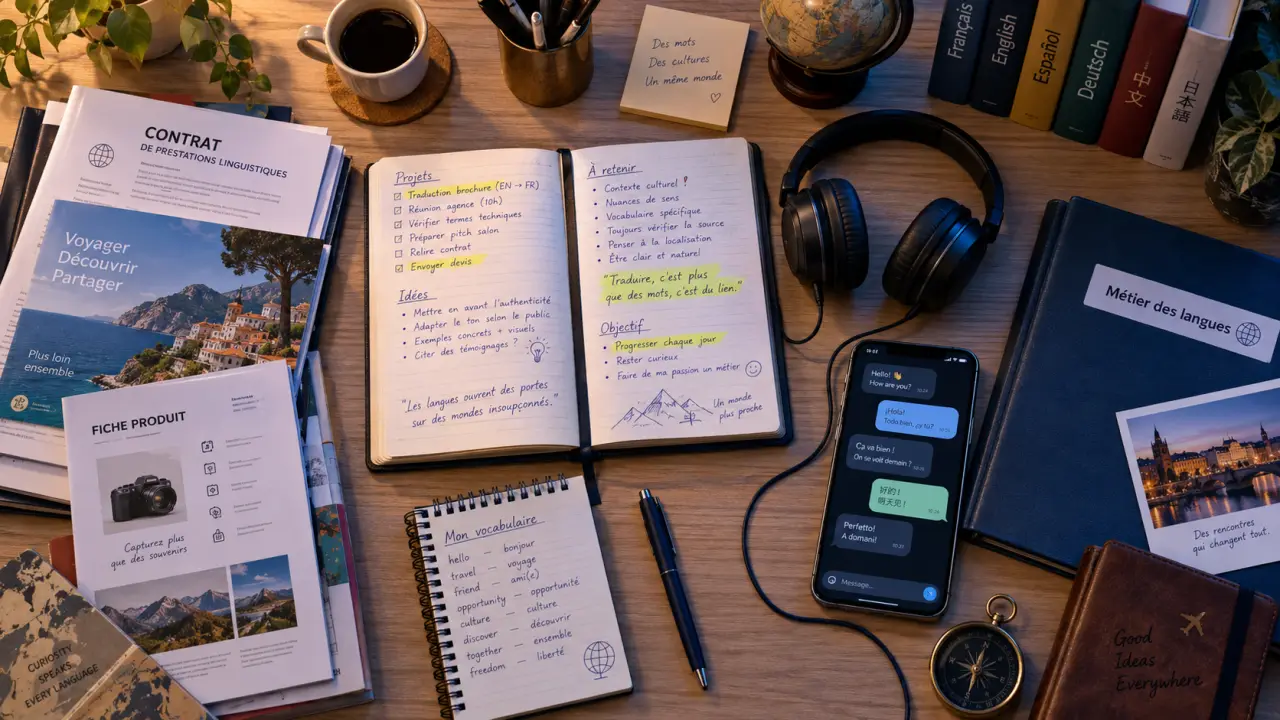 CONTRAT
DE PRESTATIONS LINGUISTIQUES
Voyager
Découvrir
Partager
Plus loin
ensemble
FICHE PRODUIT
Capturez plus
que des souvenirs
CURIOSITY
SPEAKS
EVERY LANGUAGE
Des mots
Des cultures
Un même monde
Projets
Traduction brochure (EN → FR)
Réunion agence (10h)
Vérifier termes techniques
Préparer pitch salon
Relire contrat
Envoyer devis
Idées
• Mettre en avant l'authenticité
• Adapter le ton selon le public
• Exemples concrets + visuels
• Citer des témoignages ?
"Les langues ouvrent des portes
sur des mondes insoupçonnés."
À retenir
• Contexte culturel !
• Nuances de sens
• Vocabulaire spécifique
• Toujours vérifier la source
• Penser à la localisation
• Être clair et naturel
"Traduire, c'est plus
que des mots, c'est du lien."
Objectif
• Progresser chaque jour
• Rester curieux
• Faire de ma passion un métier
Un monde
plus proche
Mon vocabulaire
hello — bonjour
travel — voyage
friend — ami(e)
opportunity — opportunité
culture — culture
discover — découvrir
together — ensemble
freedom — liberté
Français
English
Español
Deutsch
中文
日本語
Hello! 👋
How are you?
¡Hola!
Todo bien, ¿y tú?
Ça va bien !
On se voit demain ?
好的！
明天见！
Perfetto!
A domani!
Message...
Métier des langues
Des rencontres
qui changent tout.
Good
Ideas
Everywhere